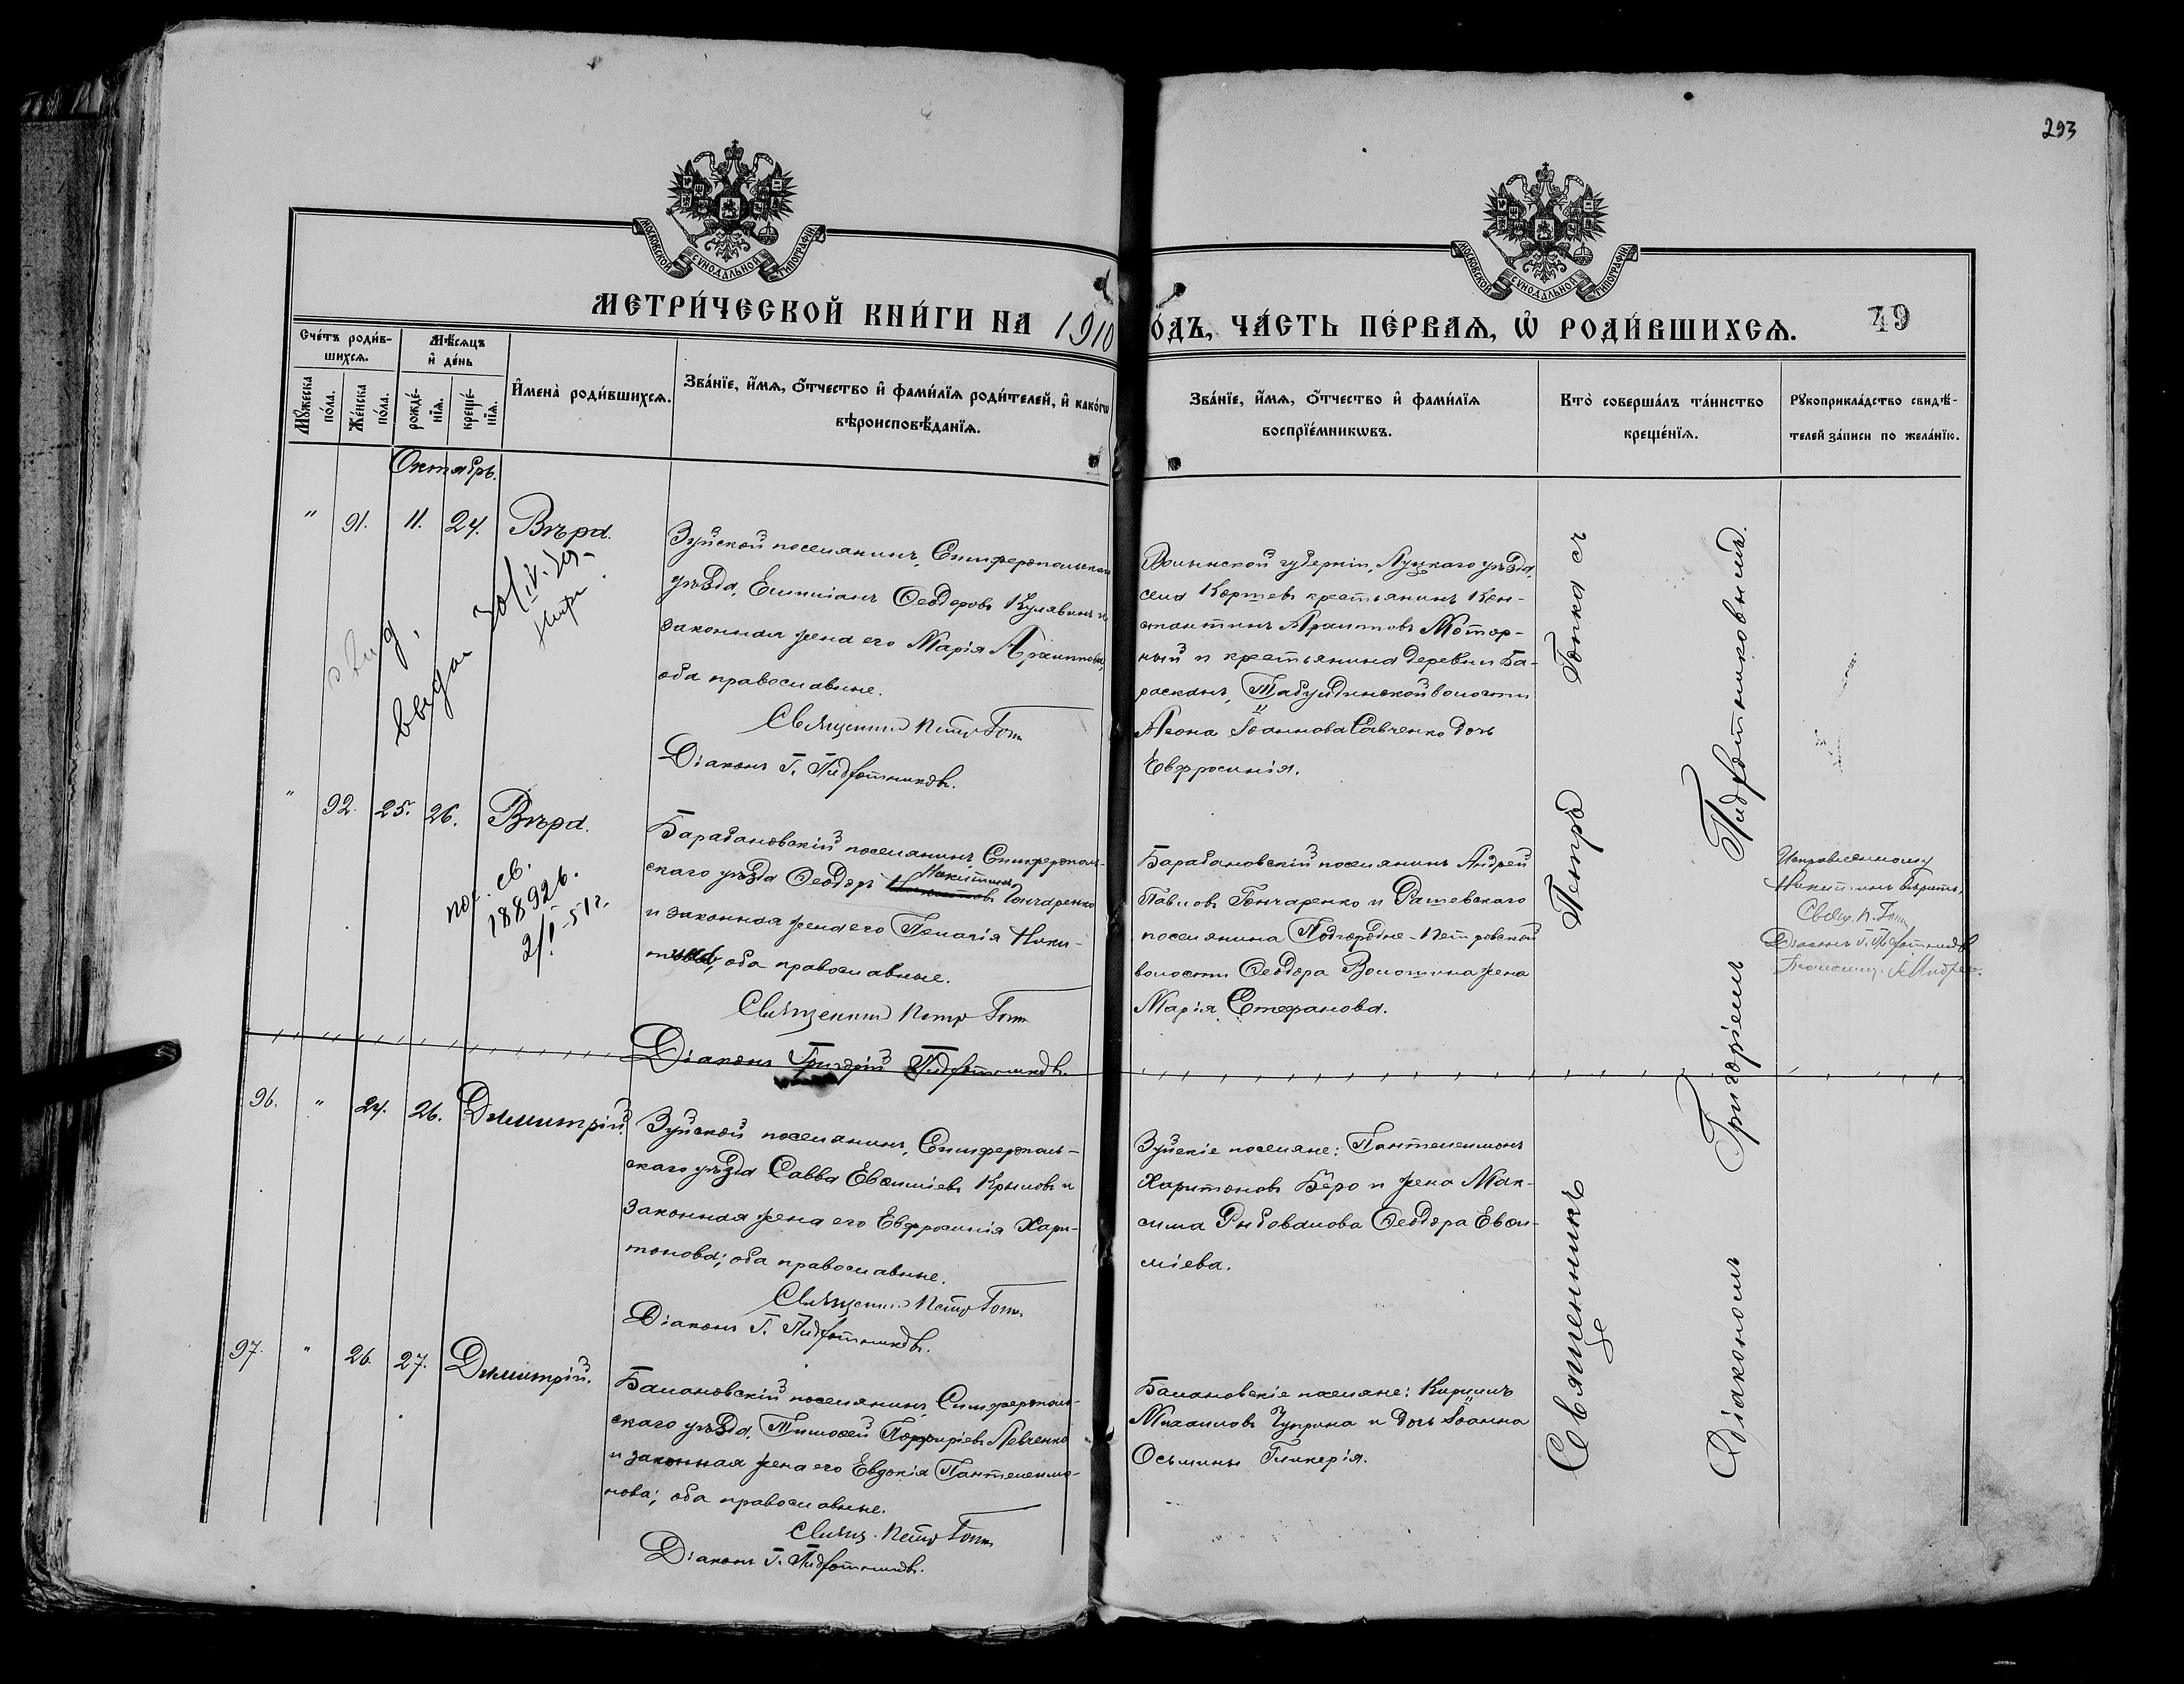 293
МОСКОВСКОЙ СѴНОДАЛЬНОЙ ТИПОГРАФІИ
МОСКОВСКОЙ СѴНОДАЛЬНОЙ ТИПОГРАФІИ
МЕТРИ́ЧЕСКОЙ КНИ́ГИ НА 1910
О́ДЪ, ЧА́СТЬ ПЕ́РВАѦ, Ѡ҆ РОДИ́ВШИХСѦ.
49
Сче́тъ роди́в-
шихсѧ.
Мꙋ́жеска
по́ла.
Же́нска
по́ла.
Мѣ́сѧцъ
и҆ де́нь
рожде́-
нїѧ.
креще́-
нїѧ.
И҆мена̀ роди́вшихсѧ.
Зва́нїе, и҆́мѧ, ѻ҆́тчество и҆ фами́лїѧ роди́телей, и҆ како́гѡ
вѣроисповѣ́данїѧ.
Зва́нїе, и҆́мѧ, ѻ҆́тчество и҆ фами́лїѧ
воспрїе́мникѡвъ.
Кто̀ соверша́лъ та́инство
креще́нїѧ.
Рꙋкоприкла́дство свидѣ́-
телей за́писи по жела́нїю.
Октябрь.
" 91. 11. 24. Вѣра.
Зуйской поселянинъ, Симферопольскаго
уѣзда, Емиліанъ Ѳеодоровъ Кулявинъ и
законная жена его Марія Архиппова,
оба православные.
Священникъ Петръ Гопка
Діаконъ Г. Пидготниковъ.
Волынской губерніи, Луцкаго уѣзда,
села Коршевъ крестьянинъ Кон-
стантинъ Архипповъ Мотор-
ный и крестьянина деревни Ба-
расханъ, Табулдинской волости
Леона Іоаннова Савченко дочь
Евфросинія.
" 92. 25. 26. Вѣра.
пос. св.
188926.
2/I-51г.
Барабановскій поселянинъ, Симферополь-
скаго уѣзда Ѳеодоръ Никитинъ Гончаренко
и законная жена его Пелагія Ники-
тина, оба православные.
Священникъ Петръ Гопка
Діаконъ Григорій Пидготниковъ.
Барабановскій поселянинъ Андрей
Павловъ Гончаренко и Рашевскаго
поселянина Подгородне-Петровской
волости Ѳеодора Волошина жена
Марія Стефанова.
Исправленному
Никитинъ вѣрить.
Свящ. П. Гопка
Діаконъ Г. Пидготниковъ
96. " 24. 26. Димитрій
Зуйской поселянинъ, Симферополь-
скаго уѣзда Савва Евѳиміевъ Крыловъ и
законная жена его Евфросинія Хари-
тонова; оба православные.
Священникъ Петръ Гопка
Діаконъ Г. Пидготниковъ.
Зуйскіе поселяне: Пантелеимонъ
Харитоновъ Беро и жена Мак-
сима Рыбовалова Ѳеодора Евѳи-
міева.
97. " 26. 27. Димитрій.
Балановскій поселянинъ, Симферополь-
скаго уѣзда, Тимоѳей Порфиріевъ Левченко
и законная жена его Евдокія Пантелеимо-
нова; оба православные.
Свящ. Петръ Гопка
Діаконъ Г. Пидготниковъ.
Балановскіе поселяне: Кириллъ
Михаиловъ Чуприна и дочь Іоанна
Осьмины Гликерія.
Священникъ Петръ Гопка съ
Діакономъ Григоріемъ Пидготниковымъ.